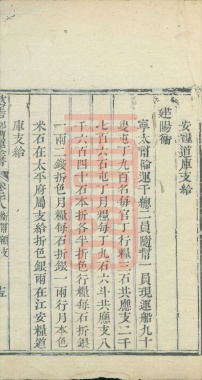 安徽道庫支給
建陽衛
寧太幫領運千總二員隨幫一員現運船九十
隻屯丁九百名每官丁行糧三石共應支二千
七百六石屯丁月糧每丁九石六斗共應支八
千六百四十石本折各半折色行糧每石折銀
一兩二錢折色月糧每石折銀一兩行月本色
米石在太平府屬支給折色銀兩在江安糧道
庫支給